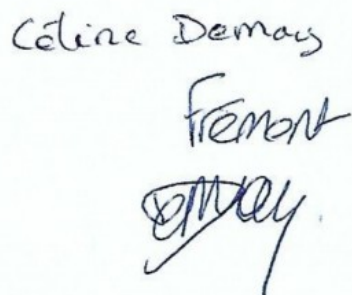 Céline Demay
Frémont
Demay